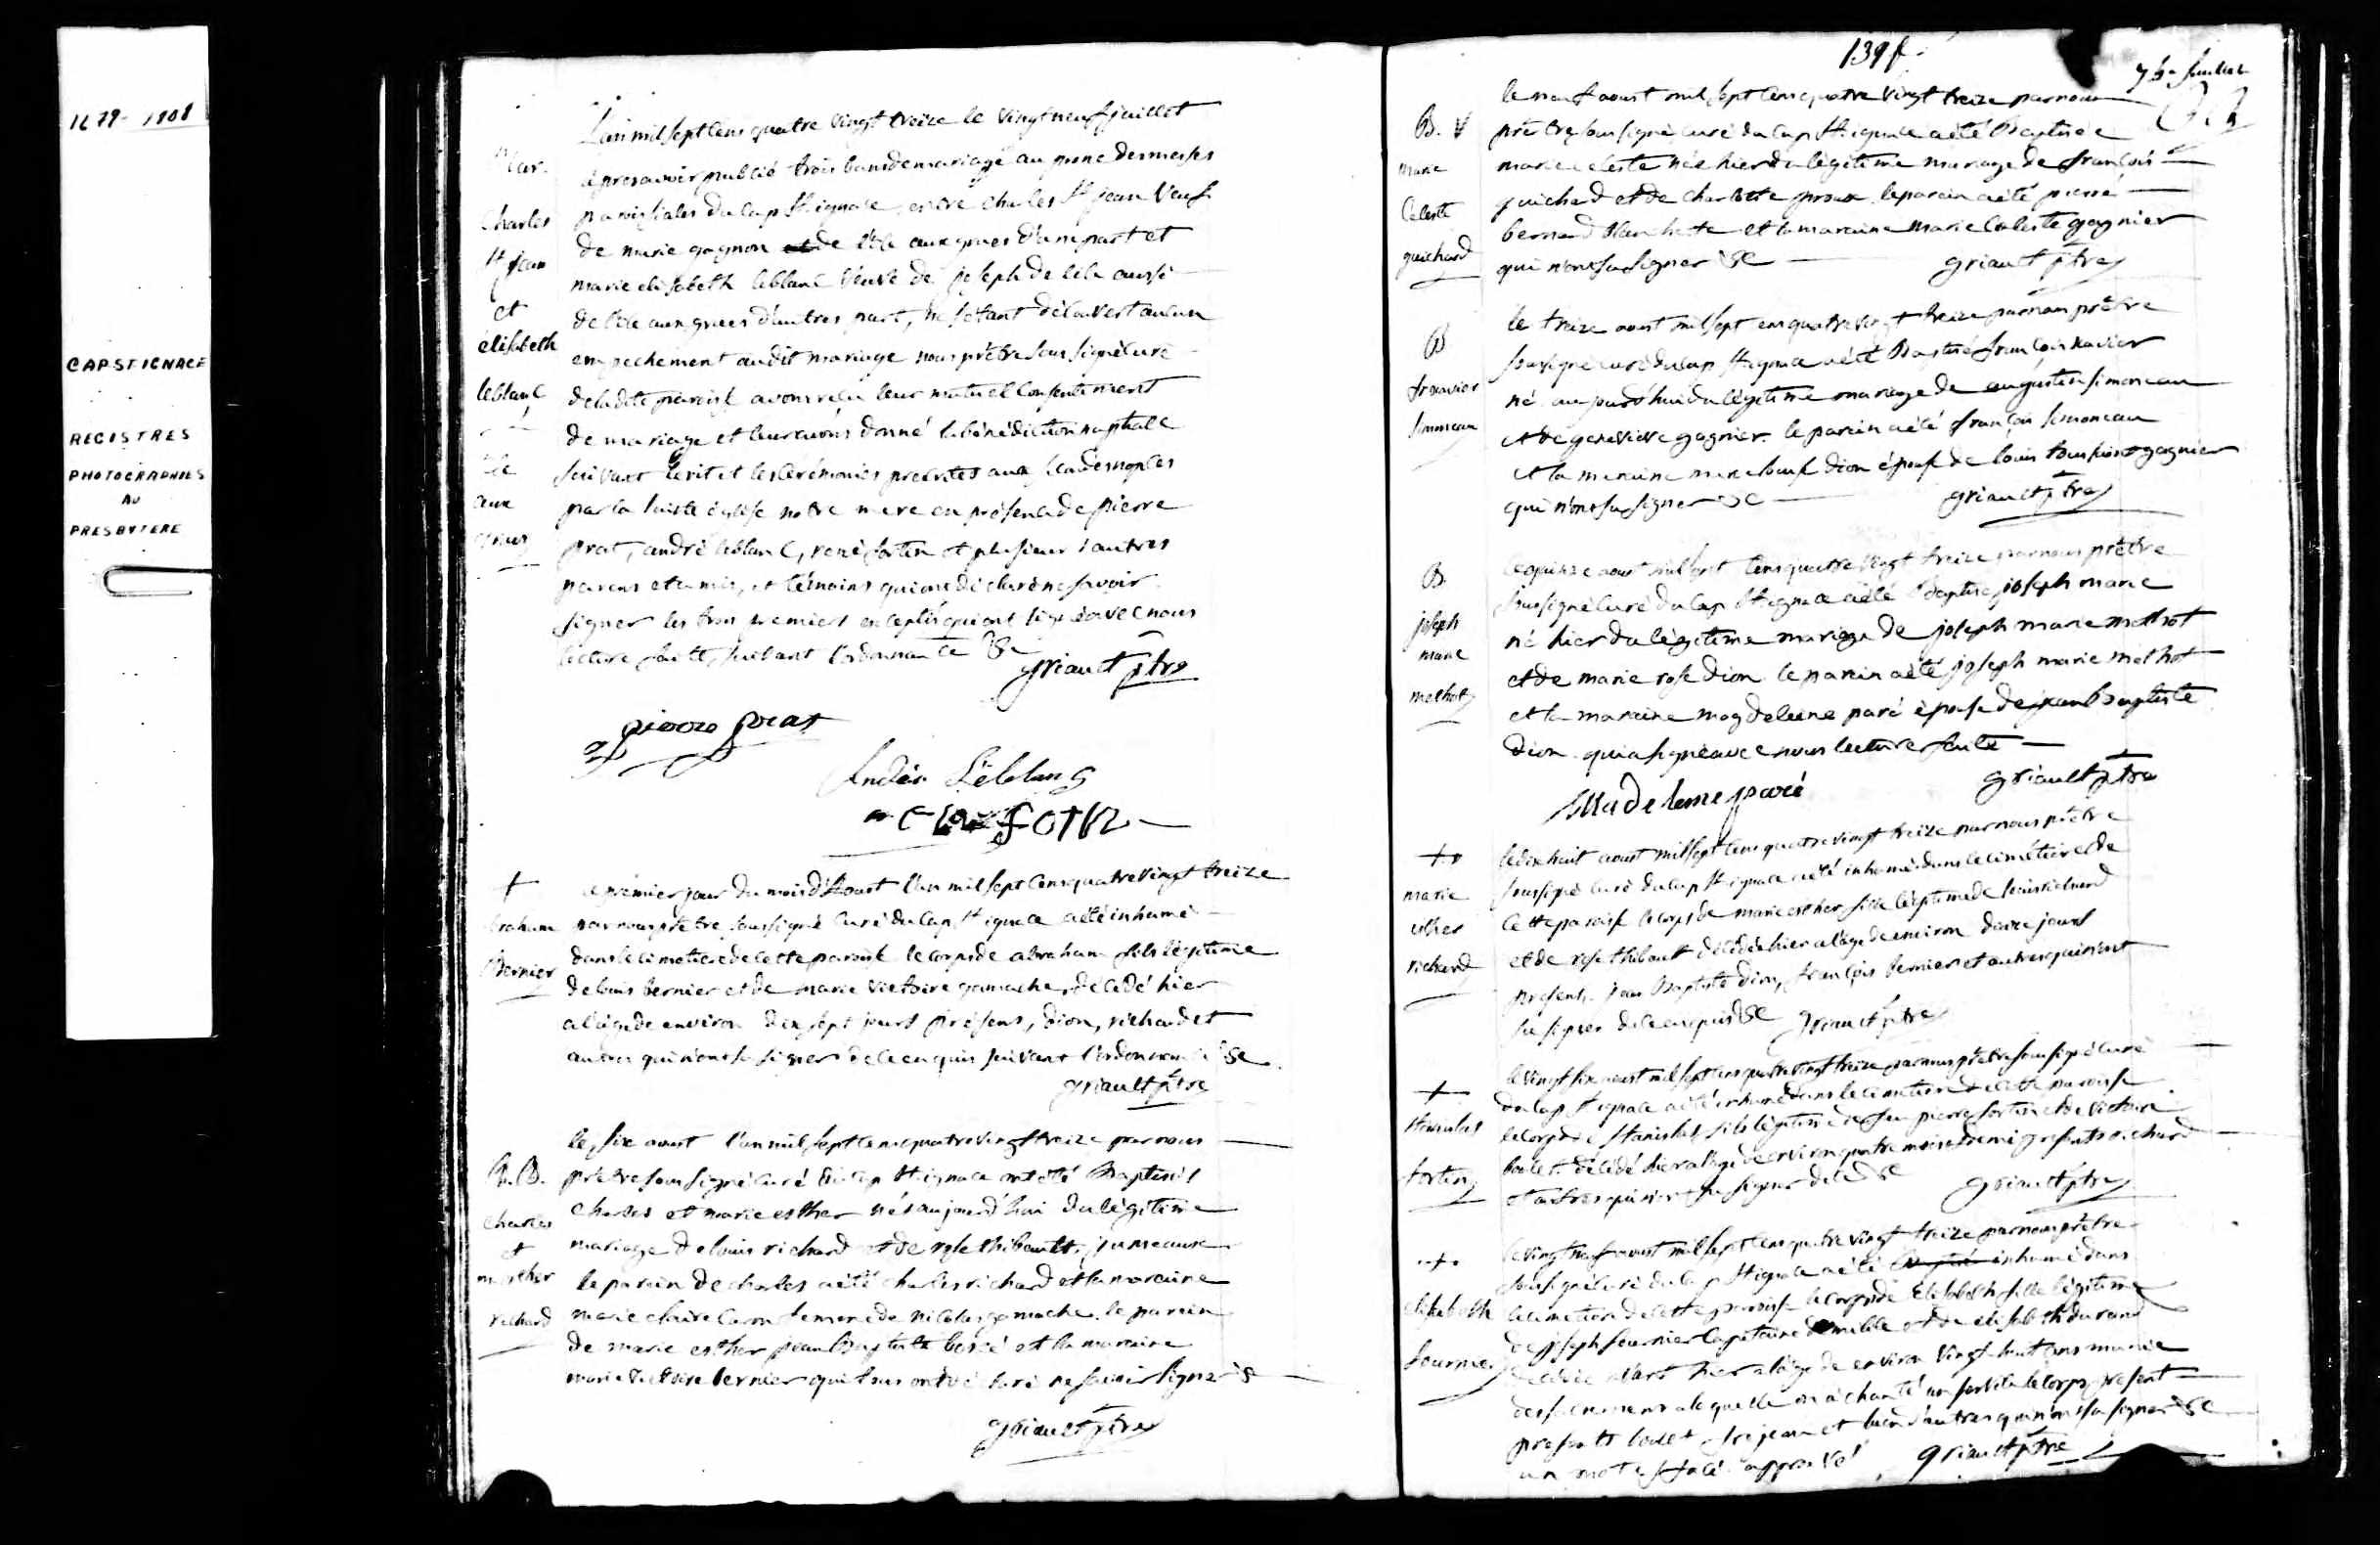 1679-1908
CAP ST IGNACE
REGISTRES
PHOTOGRAPHIES
AU
PRESBYTERE
L'an mil sept cens quatre vingt treize le vingt neuf juillet
apres avoir publié trois bans de mariage au prone des messes
paroissiales du cap St ignace entre charles St jean veuf
de marie gagnon et de l'isle aux grues d'une part et
marie elisabeth leblanc veuve de joseph de lisle aussi
de l'isle aux grues d'autres part, ne s'etant découvert aucun
empechement audit mariage nous prêtre sous signé curé
de ladite paroisse avons reçu leur mutuel consentement
de mariage et leur avons donné la bénédiction nuptiale
suivant le rit et les cérémonies prescrites
par la sainte église notre mere en présence de pierre
prat, andré leblanc, rené fortin et plusieurs d'autres
parens et amis, et témoins qui ont déclaré ne savoir
signer les trois premiers exceptés qui ont signé avec nous
lecture faite, suivant l'ordonnance &c
griault ptre
pierre prat
André Leblanc
Mar.
Charles
St jean
et
élisabeth
leblanc
isle
aux
grues
le premier jour du mois d'aoust l'an mil sept cens quatre vingt treize
par nous prêtre soussigné curé du cap St ignace a été inhumé
dans le cimetiere de cette paroisse le corps de abraham fils légitime
de louis bernier et de marie victoire gamache, décédé hier
a l'âge de environ dix sept jours présens, dion, richard et
autres qui n'ont su signer de ce enquis suivant l'ordonnance &c
griault ptre
+
abraham
Bernier
le six aoust l'an mil sept cens quatre vingt treize par nous
prêtre sous signé curé du cap St ignace ont été Baptisés
charles et marie esther nés aujourd'hui du légitime
mariage de louis richard et de rose thibault, jumeaux
le parain de charles a été charles richard et la maraine
marie claire caron femme de nicolas gamache, le parain
de marie esther jean Baptiste et la maraine
marie victoire bernier qui tous ont déclaré ne savoir signer &
griault ptre
B.B.
Charles
et
m esther
richard
139 f.
le neuf aoust mil sept cens quatre vingt treize par nous
prêtre sous signé curé du cap St ignace a été Baptisée
marie celeste née hier du légitime mariage de françois
guichard et de charlotte proux le parain a été pierre
bernard et la maraine marie celeste gagnier
qui n'ont su signer &c griault ptre
B.
marie
Celeste
guichard
le treize aoust mil sept cens quatre vingt treize par nous prêtre
soussigné curé du cap St ignace a été Baptisé françois xavier
né aujourd'hui du légitime mariage de augustin simoneau
et de genevieve gagnier. le parain a été françois simoneau
et la maraine marie louise dion épouse de louis gagnier
qui n'ont su signer &c griault ptre
B
fr xavier
simoneau
le quinze aoust mil sept cens quatre vingt treize par nous prêtre
soussigné curé du cap St ignace a été Baptisé joseph marie
né hier du légitime mariage de joseph marie methot
et de marie rose dion le parain a été joseph marie methot
et la maraine magdeleine paré épouse de jean Baptiste
dion qui a signé avec nous lecture faite
Madeleine paré griault ptre
B.
joseph
marie
methot
le dix huit aoust mil sept cens quatre vingt treize par nous prêtre
soussigné curé du cap St ignace a été inhumé dans le cimétiere de
cette paroisse le corps de marie esther fille légitime de louis richard
et de rose thibault décédée hier a l'âge de environ douze jours
présens jean Baptiste dion, françois bernier et autres qui n'ont
su signer de ce enquis &c griault ptre
+
marie
esther
richard
le vingt six aoust mil sept cens quatre vingt treize par nous prêtre sous signé curé
du cap St ignace a été inhumé dans le cimetiere de cette paroisse
le corps de stanislas fils légitime de feu pierre fortin et de victoire
boulet décédé hier a l'âge de environ quatre mois et demi présents richard
et autres qui n'ont su signer de ce &c griault ptre
+
stanislas
fortin
le vingt neuf aoust mil sept cens quatre vingt treize par nous prêtre
soussigné curé du cap St ignace a été inhumé dans
le cimetiere de cette paroisse le corps de Elisabeth fille légitime
de joseph fournier capitaine de milice et de elisabeth durand
décédée avant hier a l'âge de environ vingt huit ans munie
des sacremens a laquelle on a chanté un service le corps present
presents boulet et bien d'autres qui n'ont su signer &c
un mot effacé approuvé griault ptre
+
elisabeth
fournier